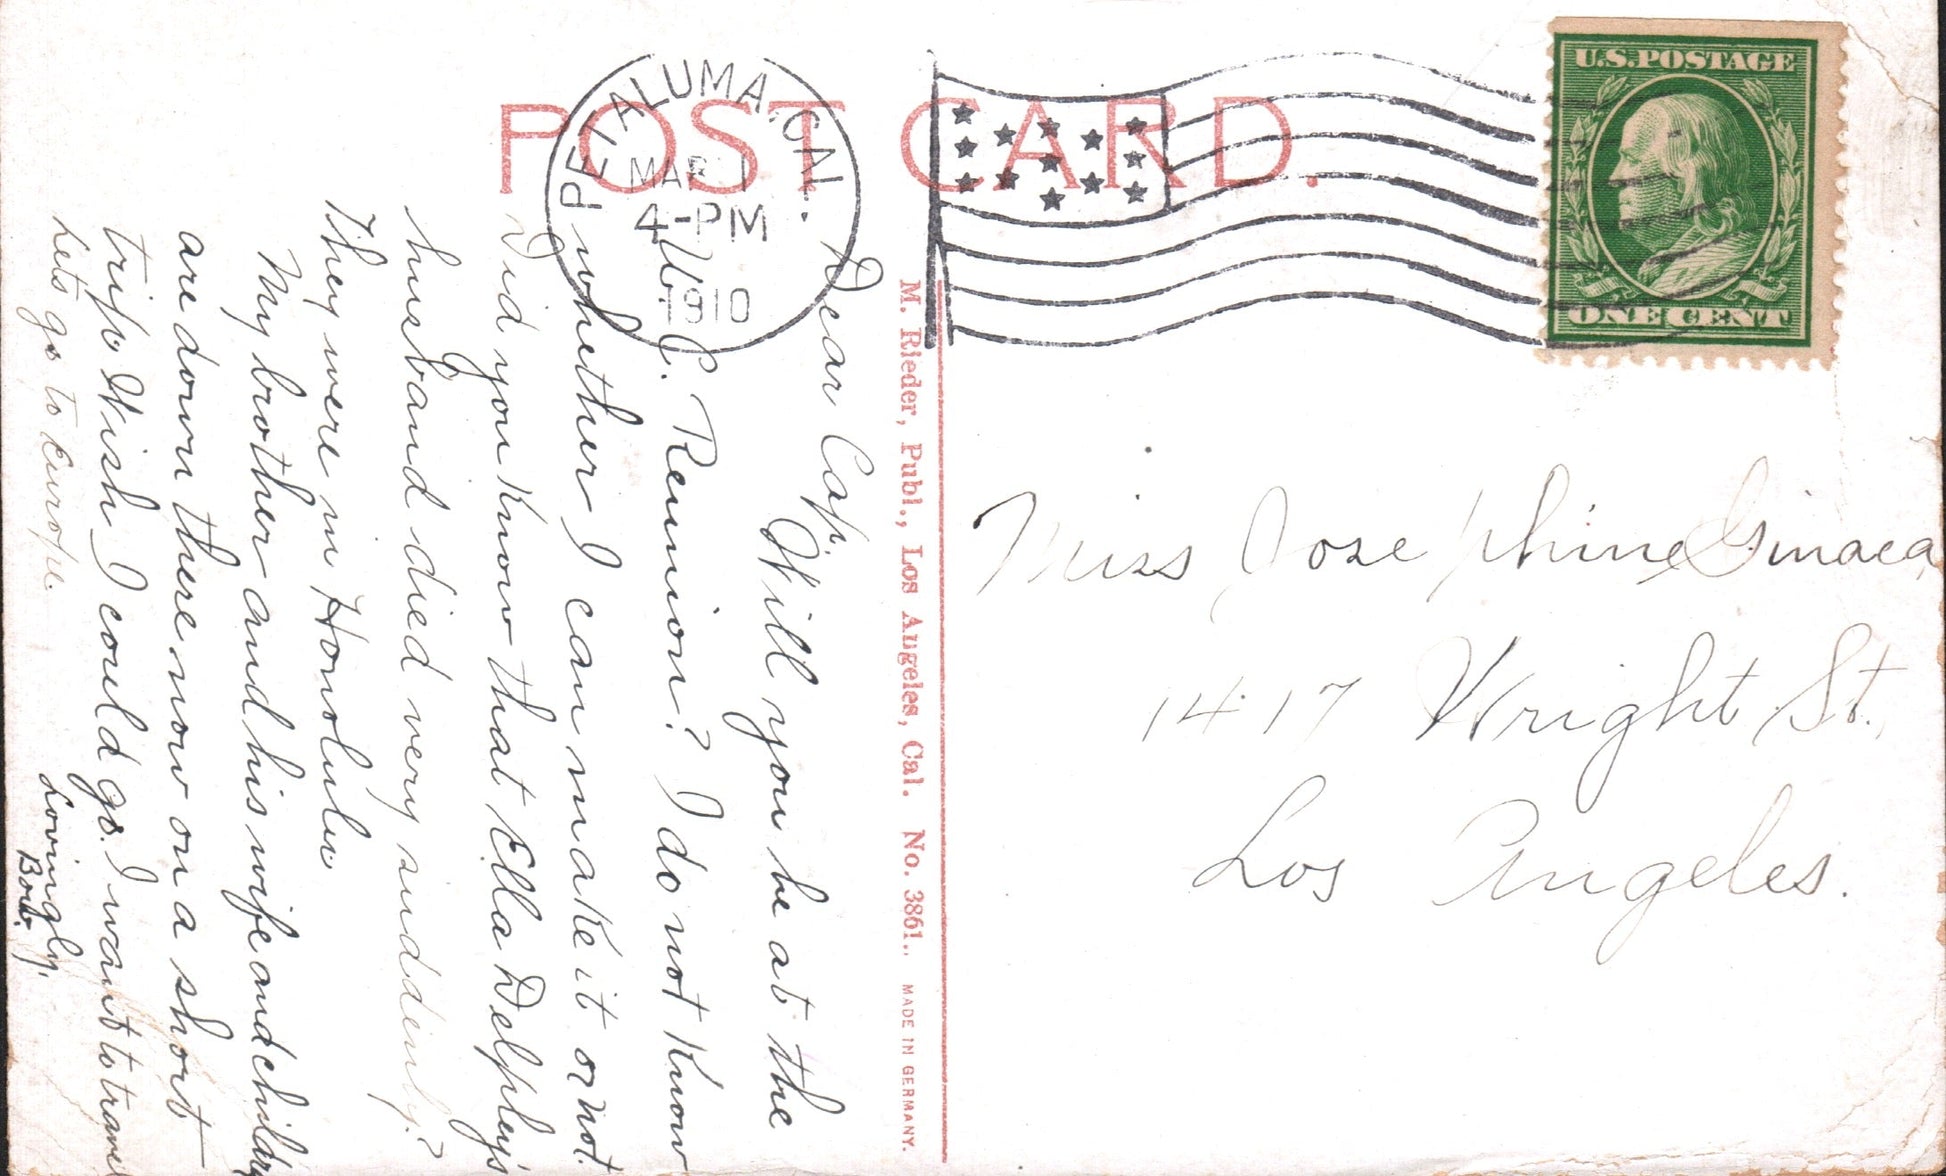 POST CARD.
PETALUMA, CAL.
MAR 1
4-PM
1910
U.S. POSTAGE
ONE CENT
Dear Cap,
Will you be at the
U. C. Reunion? I do not know
whether I can make it or not.
Did you know that Ella Delpley's
husband died very suddenly?
They were in Honolulu
My brother and his wife and children
are down there now on a short
trip. Wish I could go. I want to travel
Lets go to Europe.
Lovingly,
Bob.
M. Rieder, Publ., Los Angeles, Cal. No. 3861. MADE IN GERMANY.
Miss Josephine Ginaca
1417 Wright St.,
Los Angeles.